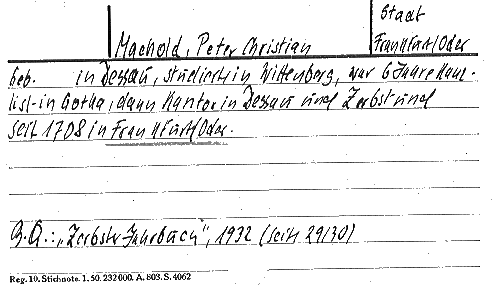 Stadt
Machold, Peter Christian Frankfurt/Oder
geb. in Dessau, studiert in Wittenberg, war 6 Jahre Kanz-
list in Gotha, dann Kantor in Dessau und Zerbst und
seit 1708 in Frankfurt/Oder.
G.Q.: „Zerbster Jahrbuch", 1932 (Seite 29/30)
Reg. 10. Stichnote. 1. 50. 232 000. A. 803. S. 4062